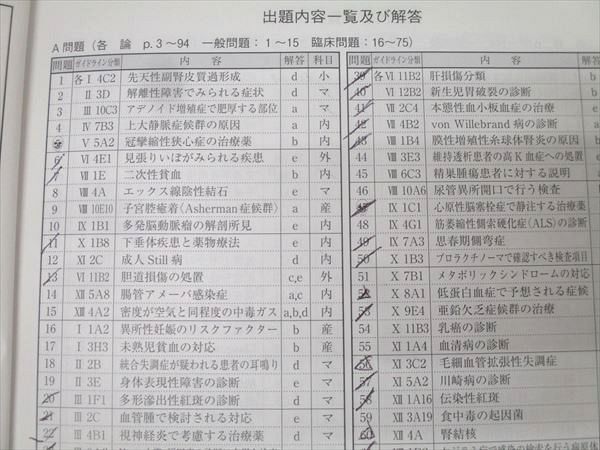 出題内容一覧及び解答
A問題（各 論 p.3～94 一般問題：1～15 臨床問題：16～75）
問題 ガイドライン分類 内 容 解答 科目
1 各Ⅰ 4C2 先天性副腎皮質過形成 d 小
2 Ⅱ 3D 解離性障害でみられる症状 d マ
3 Ⅲ 10C3 アデノイド増殖症で肥厚する部位 a マ
4 Ⅳ 7B3 上大静脈症候群の原因 a 内
Ⅴ 5A2 冠攣縮性狭心症の治療薬 b 内
6 Ⅵ 4E1 見張りいぼがみられる疾患 e 外
7 Ⅶ 1E 二次性貧血 b 内
8 Ⅷ 4A エックス線陰性結石 e マ
9 Ⅷ 10E10 子宮腔癒着（Asherman症候群） a 産
10 Ⅸ 1B1 多発脳動脈瘤の解剖所見 e 内
11 Ⅹ 1B8 下垂体疾患と薬物療法 e 内
12 Ⅺ 2C 成人Still病 d 内
13 Ⅵ 11B2 胆道損傷の処置 c,e 外
14 Ⅻ 5A8 腸管アメーバ感染症 a,c 内
15 ⅩⅢ 4A2 密度が空気と同程度の中毒ガス a,b,d 内
16 Ⅰ 1A2 異所性妊娠のリスクファクター b 産
17 Ⅰ 3H3 未熟児貧血の対応 b 産
18 Ⅱ 2B 統合失調症が疑われる患者の耳鳴り d マ
19 Ⅱ 3E 身体表現性障害の診断 e マ
20 Ⅲ 1F1 多形滲出性紅斑の診断 d マ
21 Ⅲ 2C 血管腫で検討される対応 e マ
22 Ⅲ 4B1 視神経炎で考慮する治療薬 d マ
問題 ガイドライン分類 内 容
39 各Ⅵ 11B2 肝損傷分類 b
40 Ⅵ 12B2 新生児胃破裂の診断 d
41 Ⅶ 2C4 本態性血小板血症の治療 e
42 Ⅶ 4B2 von Willebrand 病の診断 d
43 Ⅷ 1B4 膜性増殖性糸球体腎炎の原因
44 Ⅷ 3E3 維持透析患者の高K血症への処置
45 Ⅷ 6C3 精巣腫瘍患者に対する説明
46 Ⅷ 10A6 尿管異所開口で行う検査
Ⅸ 1C1 心原性脳塞栓症で静注する治療薬
48 Ⅸ 4G1 筋萎縮性側索硬化症(ALS)の診断
49 Ⅸ 7A3 思春期側弯症
50 Ⅹ 1B3 プロラクチノーマで確認すべき検査項目
51 Ⅹ 7B1 メタボリックシンドロームの対応
52 Ⅹ 8A1 低蛋白血症で予想される症候
53 Ⅹ 9E4 亜鉛欠乏症候群の治療
54 Ⅹ 11B3 乳癌の診断
55 Ⅺ 1A4 血清病の診断
56 Ⅺ 3C2 毛細血管拡張性失調症
57 Ⅺ 5A2 川崎病の診断
58 Ⅻ 1A16 伝染性紅斑
59 Ⅻ 3A19 食中毒の起因菌
60 Ⅻ 4A 腎結核